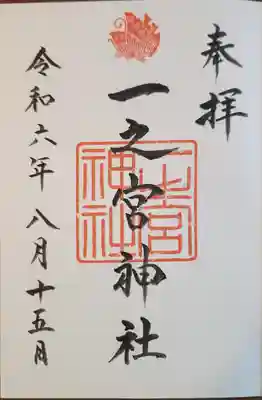 奉拝
一之宮神社
一之宮神社
令和六年八月十五月